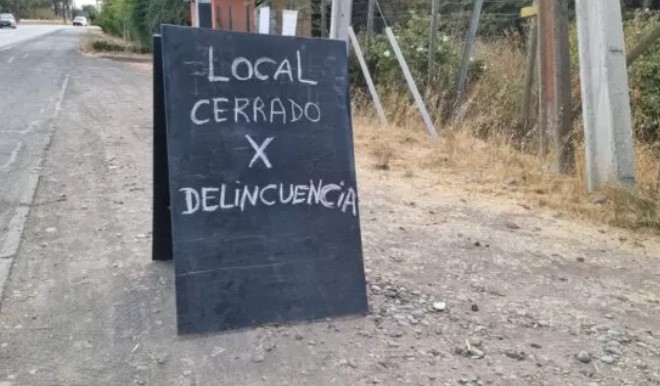 LOCAL
CERRADO
X
DELINCUENCIA